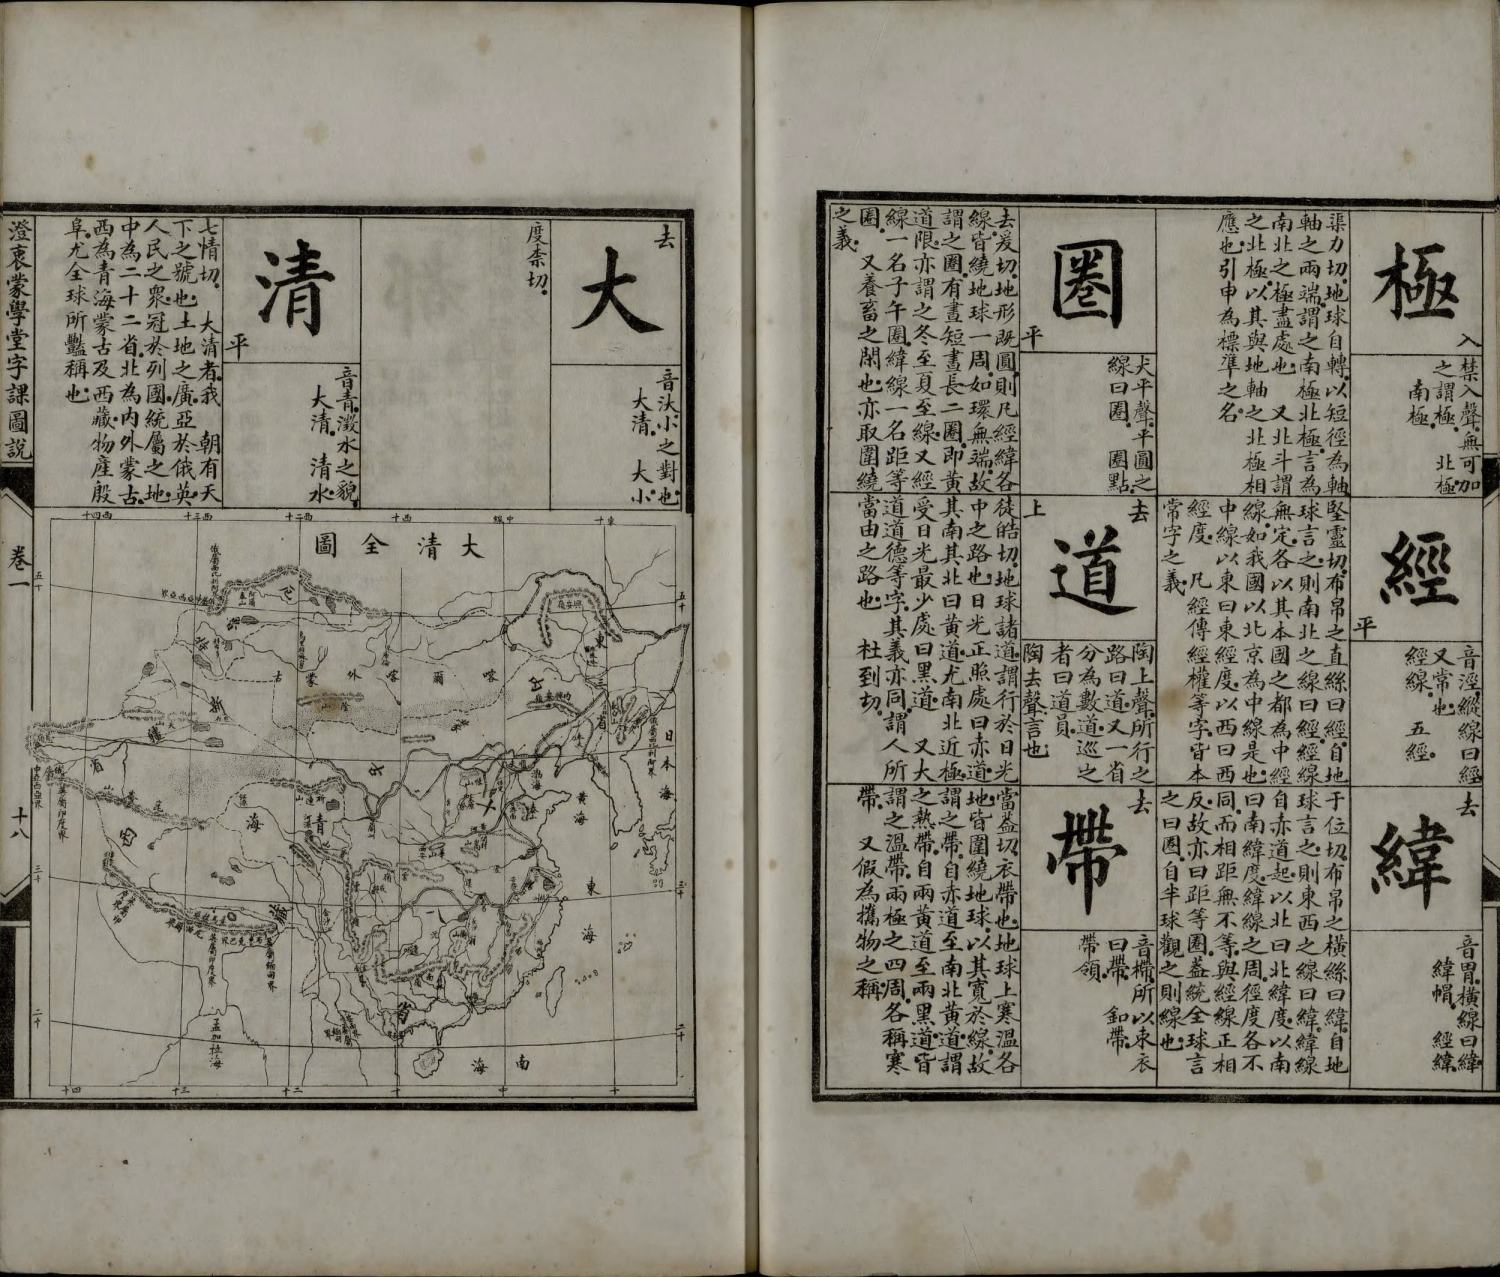 極
入
禁入聲無可加
之謂極 北極
南極
渠力切地球自轉以短徑為軸
軸之兩端謂之南極北極言為
南北之極盡處也 又北斗謂
之北極以其與地軸之北極相
應也引申為標準之名
經
平
音涇縱線曰經
又常也
經線 五經
堅靈切布帛之直絲曰經自地
球言之則南北之線曰經經線
無定各以其本國之都為中經
線如我國以北京為中線是也
中線以東曰東經度以西曰西
經度 凡經傳經權等字皆本
常字之義
緯
去
音胃橫線曰緯
緯帽 經緯
于位切布帛之橫絲曰緯自地
球言之則東西之線曰緯緯線
自赤道起以北曰北緯度以南
曰南緯度緯線之周徑度各不
同而相距無不等與經線正相
反故亦曰距等圈蓋統全球言
之曰圈自半球觀之則線也
圈
平
犬平聲平圓之
線曰圈 圈點
去爰切地形既圓則凡經緯各
線皆繞地球一周如環無端故
謂之圈有晝短晝長二圈即黃
道限亦謂之冬至夏至線又經
線一名子午圈緯線一名距等
圈 又養畜之閑也亦取圍繞
之義
道
去
上
陶上聲所行之
路曰道又一省
分為數道巡之
者曰道員
陶去聲言也
徒皓切地球諸道謂行於日光
中之路也日光正照處曰赤道
其南其北曰黃道尤南北近極
受日光最少處曰黑道 又大
道道德等字其義亦同謂人所
當由之路也 杜到切
帶
去
音襶所以束衣
曰帶 釦帶
帶領
當蓋切衣帶也地球上寒溫各
地皆圍繞地球以其寬於線故
謂之帶自赤道至南北黃道謂
之熱帶自兩黃道至兩黑道皆
謂之溫帶兩極之四周各稱寒
帶 又假為攜物之稱
大
去
音汏小之對也
大清 大小
度柰切
清
平
音青澂水之貌
大清 清水
七情切 大清者我 朝有天
下之號也土地之廣亞於俄英
人民之眾冠於列國統屬之地
中為二十二省北為內外蒙古
西為青海蒙古及西藏物產殷
阜尤全球所豔稱也
大清全圖
喀爾喀外蒙古
日本海
黃海
東海
南海
孟加拉海
渤海
青海
澄衷蒙學堂字課圖說
卷一
十八